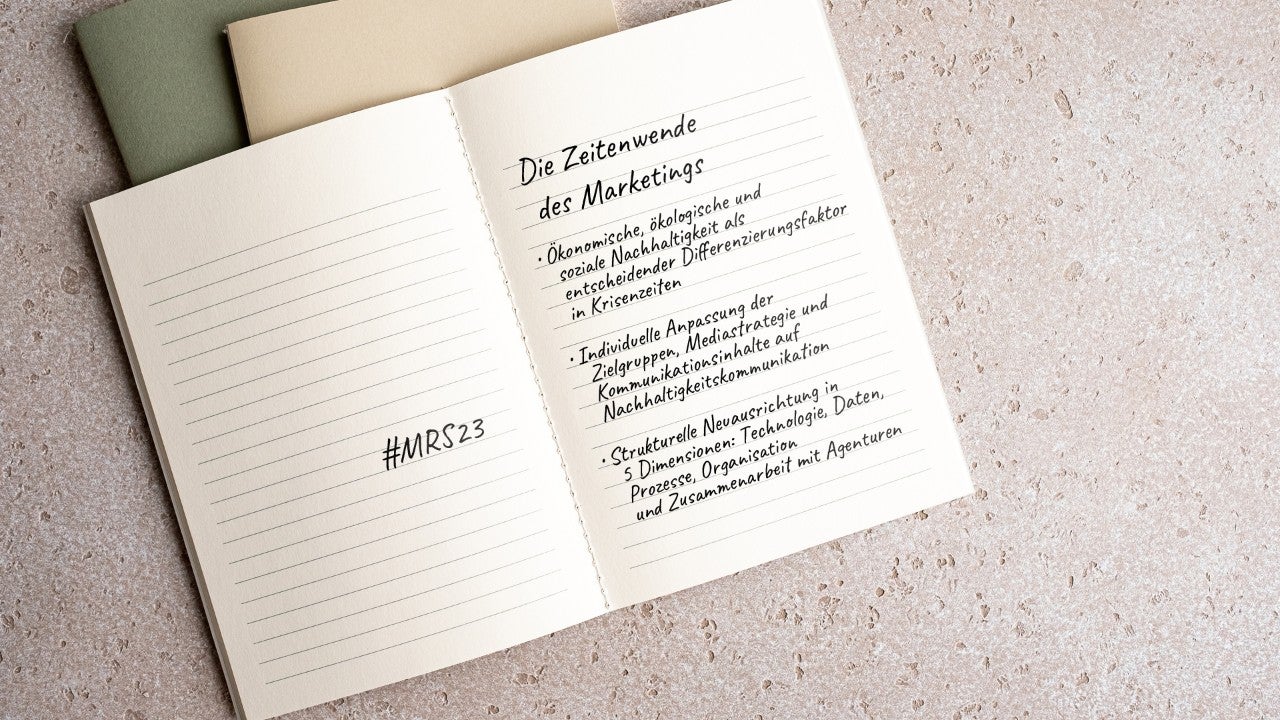 #MRS23
Die Zeitenwende
des Marketings
• Ökonomische, ökologische und
soziale Nachhaltigkeit als
entscheidender Differenzierungsfaktor
in Krisenzeiten
• Individuelle Anpassung der
Zielgruppen, Mediastrategie und
Kommunikationsinhalte auf
Nachhaltigkeitskommunikation
• Strukturelle Neuausrichtung in
5 Dimensionen: Technologie, Daten,
Prozesse, Organisation
und Zusammenarbeit mit Agenturen